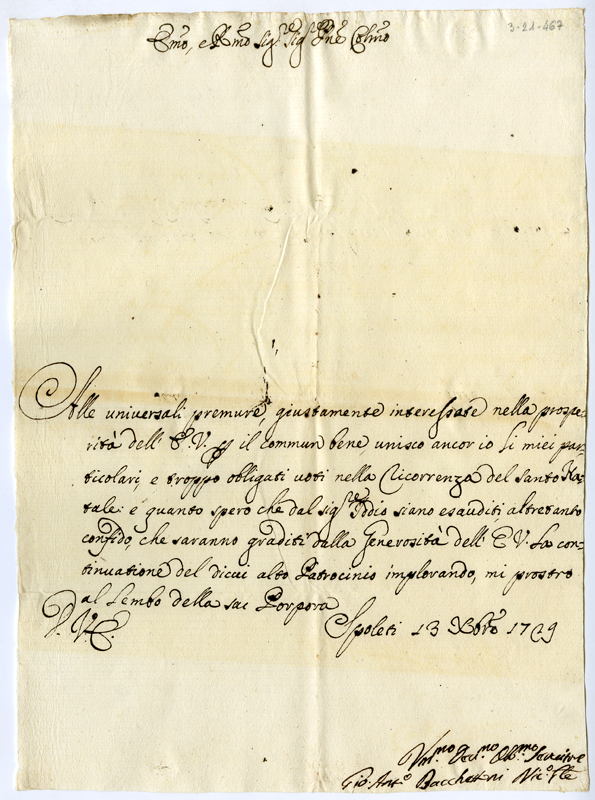 3-21-467
Emo, e Rmo Sig.re Sig.re Pne Colmo
Alle universali premure, giustamente interessate nella prospe=
rità dell' E.V. p il commun bene unisco ancor io li miei par=
ticolari, e troppo obligati voti nella Ricorrenza del Santo Na=
tale: e quanto spero che dal Sig.re Iddio siano esauditi, altretanto
confido, che saranno graditi dalla Generosità dell' E.V. La con=
tinuatione del di cui alto Patrocinio implorando, mi prostro
al Lembo della sac Porpora
D. V.E. Spoleti 13 Xbre 1729
Um.mo Dev.mo Obb.mo Servitore
Gio: Ant.o Bacchettini